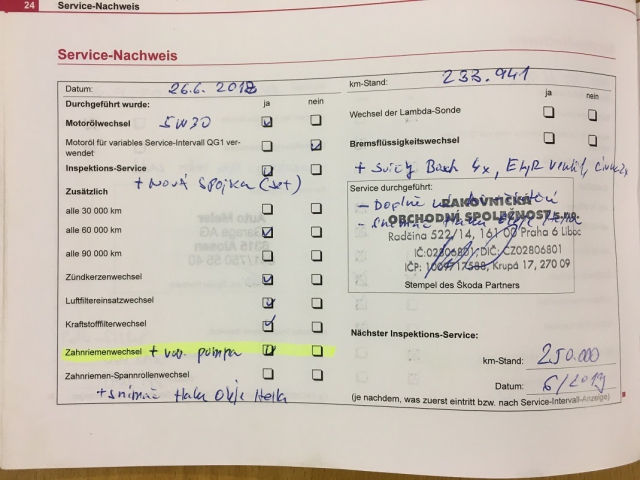 24 Service-Nachweis
Service-Nachweis
Datum: 26.6. 2018
km-Stand: 233.941
Durchgeführt wurde: ja nein
ja nein
Motorölwechsel 5W30
Wechsel der Lambda-Sonde
Motoröl für variables Service-Intervall QG1 ver-
wendet
Bremsflüssigkeitswechsel
Inspektions-Service
+ nová spojka (set)
+ svíčky Bosch 4x, EGR ventil,
Zusätzlich
alle 30 000 km
alle 60 000 km
alle 90 000 km
Zündkerzenwechsel
Luftfiltereinsatzwechsel
Kraftstofffilterwechsel
Zahnriemenwechsel + vod. pumpa
Zahnriemen-Spannrollenwechsel
+ snímač tlaku oleje Hella
Service durchgeführt:
- Doplně
RAKOVNICKÁ
OBCHODNÍ SPOLEČNOST s.r.o.
Radčina 522/14, 161 00 Praha 6 Liboc
IČ:02806801, DIČ: CZ02806801
IČP: 1009717588, Krupá 17, 270 09
Stempel des Škoda Partners
Nächster Inspektions-Service:
km-Stand: 250.000
Datum: 6/2019
(je nachdem, was zuerst eintritt bzw. nach Service-Intervall-Anzeige)